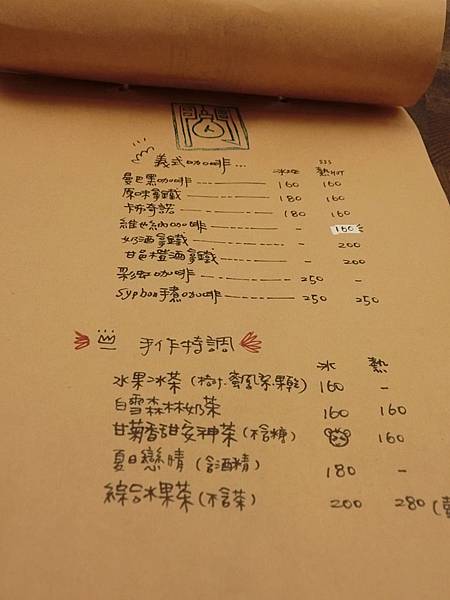 義式咖啡... 冰ICE 熱HOT
曼巴黑咖啡 160 160
原味拿鐵 180 160
卡布奇諾 180 160
維也納咖啡 - 160
奶酒拿鐵 - 200
甘邑橙酒拿鐵 - 200
彩虹咖啡 250 -
Syphon手煮咖啡 250 250
手作特調 冰 熱
水果冰茶 160 -
白雪森林奶茶 160 160
甘菊香甜安神茶(不含糖) 160
夏日戀晴(含酒精) 180 -
綜合水果茶(不含茶) 200 280